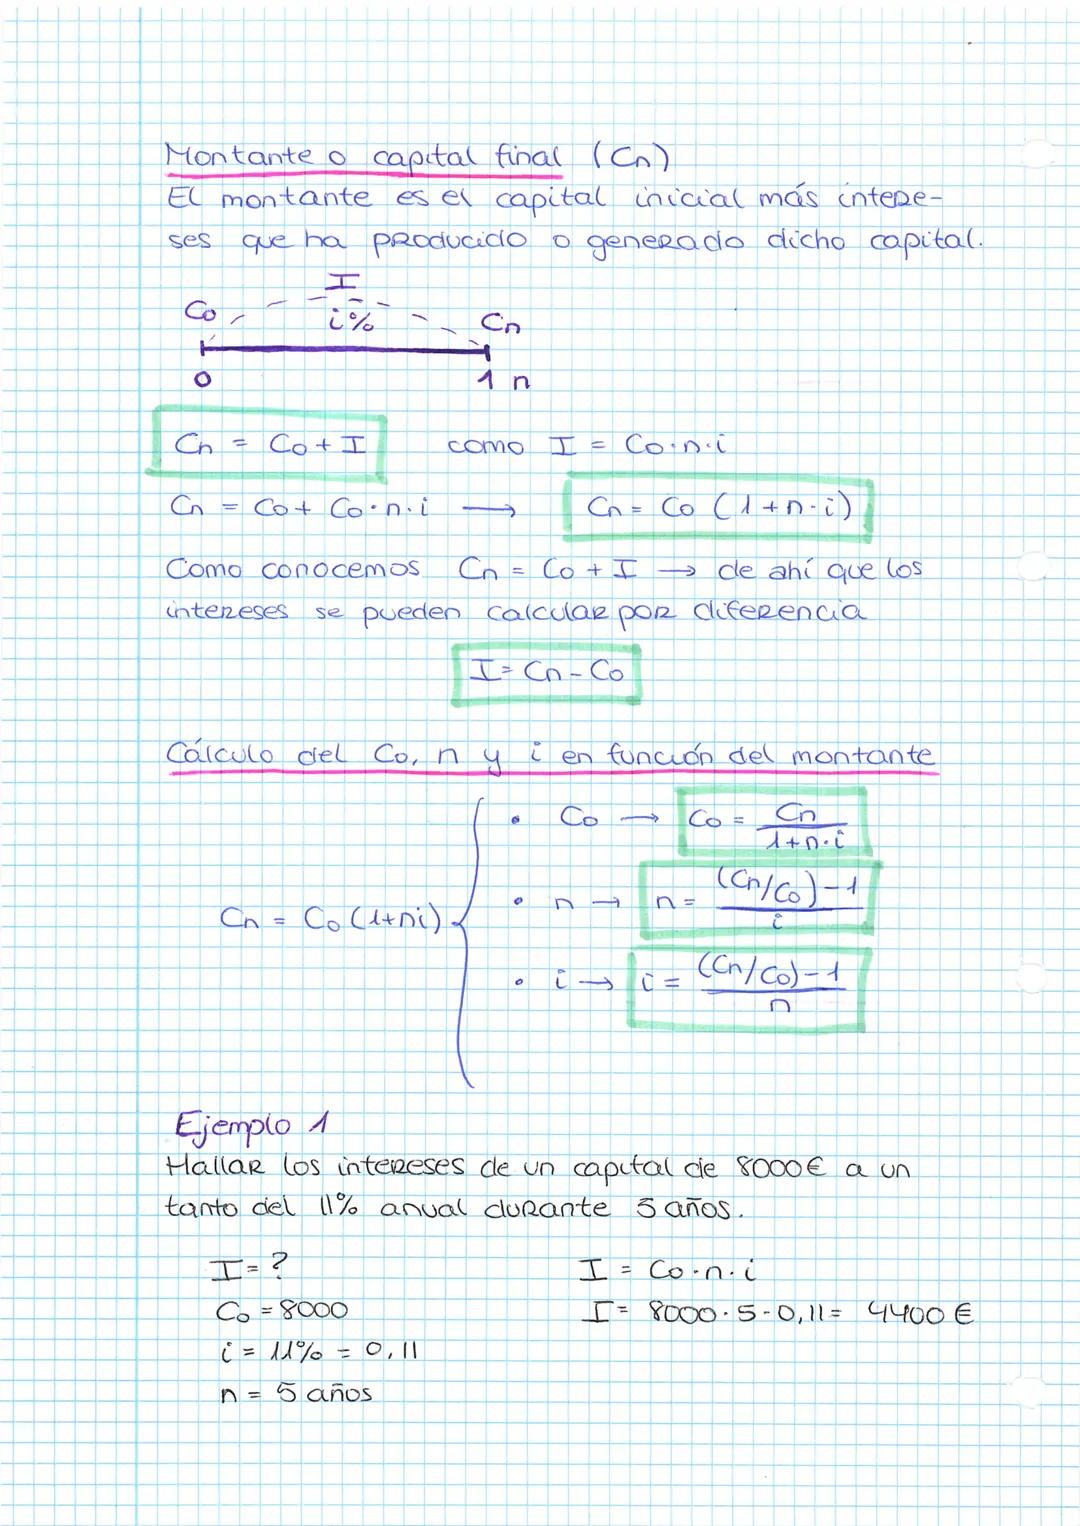 Montante o capital final (Cn)
El montante es el capital inicial más intere-
ses que ha producido o generado dicho capital.
I
Co i% Cn
0 1 n
Cn = Co + I como I = Co·n·i
Cn = Co + Co·n·i → Cn = Co (1+n·i)
Como conocemos Cn = Co + I → de ahí que los
intereses se pueden calcular por diferencia
I = Cn - Co
Cálculo del Co, n y i en función del montante
• Co → Co = Cn / 1+n·i
• n → n = (Cn/Co)-1 / i
Cn = Co (1+ni)
• i → i = (Cn/Co)-1 / n
Ejemplo 1
Hallar los intereses de un capital de 8000€ a un
tanto del 11% anual durante 5 años.
I = ? I = Co·n·i
Co = 8000 I = 8000·5·0,11 = 4400 €
i = 11% = 0,11
n = 5 años